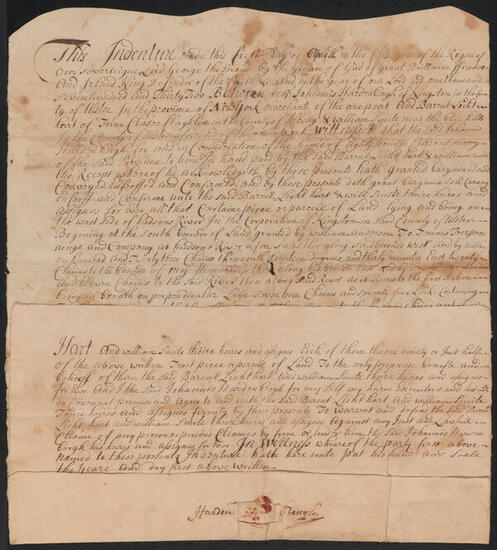 This Indenture made this first Day of Aprill in the fifth year of the Reigne of
Our Sovereigne Lord George the second by the grace of God of great Brittaine france
And Ireland King Defender of the faith &c And in the year of our Lord god one thousand
Seven hundred and thirty Two Between Maj Johannis Hardenbergh of Kingston in the Coun
ty of Ulster in the province of New York merchant of the one part And Barnt Licht
hart of County of Albany & William Smite near the blue hills
Wittnesseth that the said Johannis
Hardenbergh for and in Consideration of the Somme of Eighty pounds Current money
of the said Province to him in hand paid by the said Barnt Light hart & William
the Receipt whereof he acknowledgeth by these presents hath granted bargained sold
Conveyed Infeoffed and Confirmed and by these presents doth grant bargane Sell Convey
Infeoff and Confirme unto the said Barnt Light hart & William Smite theire heires and
Assignes for Ever all that Certaine piece or parcell of Land lying and being on
the west side of Hudsons River in the Corporation of Kingstone in said County of Ulster
Begining at the South Bounder of Land granted by William anderson To
and Company at Hudsons River aforesaid thence along said bounds west and by north
one hundred And Twenty three Chains thence south degrees and thirty minutes East twenty
Chains to the bounds of thence along his bounds East
and Eleven Chains to the said River then along said River as it Runs to the first Station
being in breath on perpendicular Line Seventeen Chains and seventy five Link Containing
Hart And William Smite theire heires and assigns Each of them the one ninety or Just halfe
of the above written Tract piece or parcell of Land To the only propper benefitt and
behooff of them the said Barent Light hart and William Smite theire heires and assigns
for Ever And I the said Johannis Hardenbergh for my self my heires
Covenant promise and Agree to and with the said Barnt Light hart and William Smite
Theire heires and assignes firmly by these presents To warrent and defend the said Barnt
Light hart and William Smite theire heires and assigns against any Just and Lawfull
Claime of any person or persons Claiming by form or under him the said Johannis Harden
bergh his heires and Assigns for Ever In Wittness whereof the party first above
named to these presents Indenture hath here unto put his hand and Seale
the Yeare and day first above written
Harden Bergh